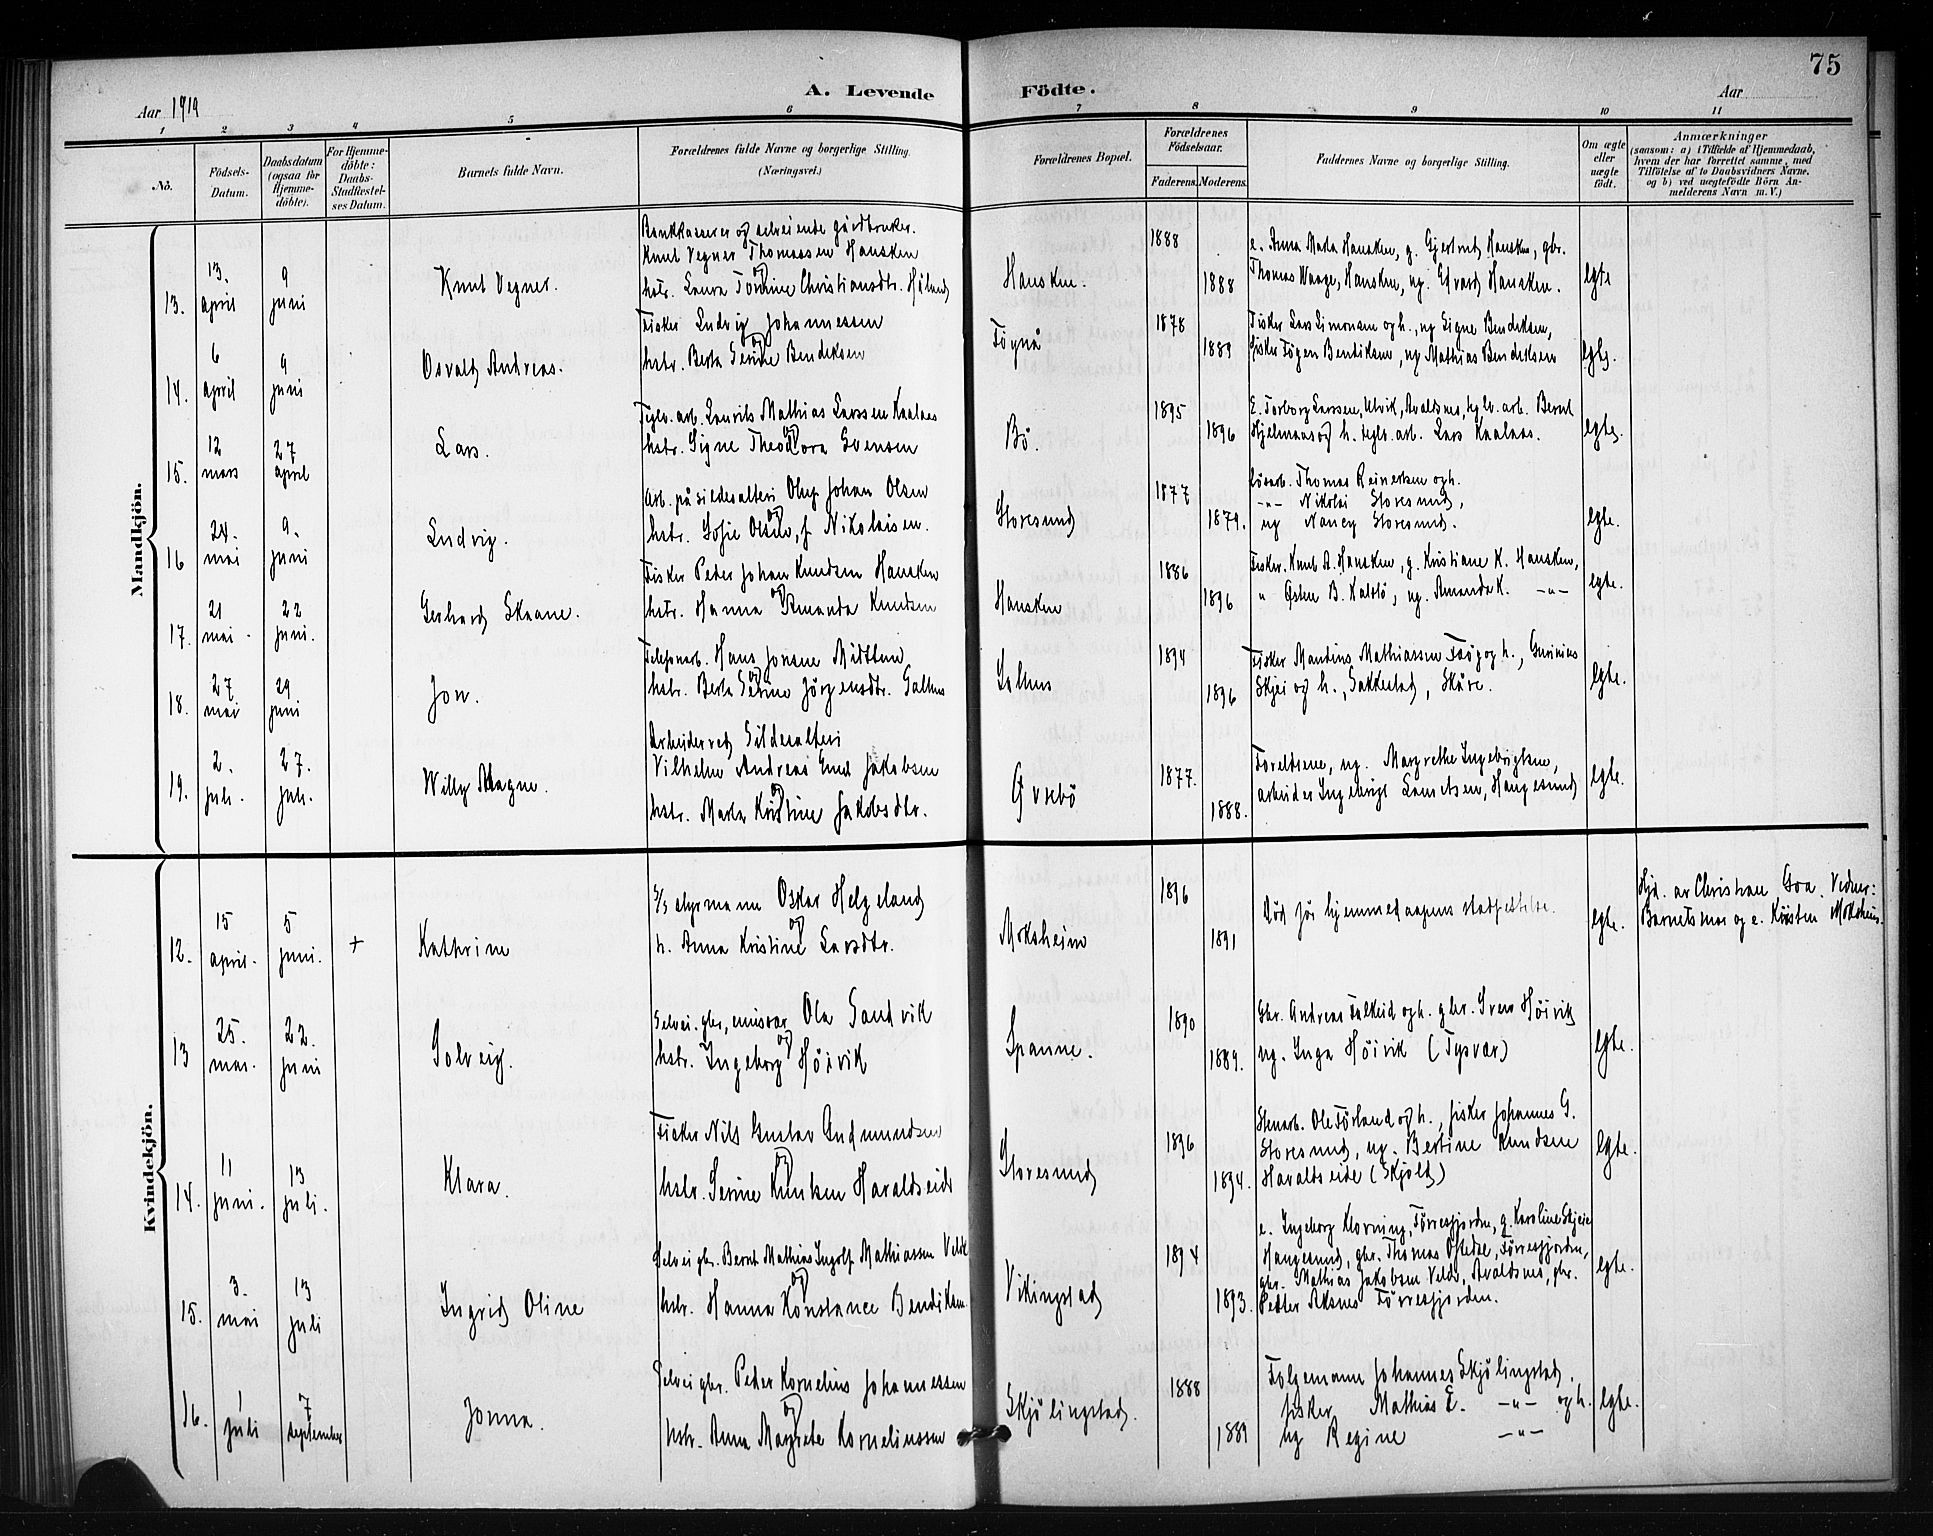 75
A. Levende Födte.
Aar 1919
Aar
1 2 3 4 5 6 7 8 9 10 11
No.
Födsels-Datum.
Daabsdatum (ogsaa for Hjemme-döbte).
For Hjemme-döbte: Daabs-Stadfæstel-ses Datum.
Barnets fulde Navn.
Forældrenes fulde Navne og borgerlige Stilling.
(Næringsvei.)
Forældrenes Bopæl.
Forældrenes Födselsaar.
Faderens. Moderens.
Faddernes Navne og borgerlige Stilling.
Om ægte eller uægte födt.
Anmærkninger
(saasom: a) i Tilfælde af Hjemmedaab, hvem der har forrettet samme, med Tilföielse af to Daabsvidners Navne, og b) ved uægtefödte Börn An-melderens Navn m. V.)
Mandkjön.
13. 13. april 9 juni Knut Vegner.
Bankkasserer og selveiende gårdbruker.
Knut Vegner Thomassen Hausken
og
hstr. Laura Tomine Christiansdtr. Höland
Hausken. 1888 1888
e. Anna Marta Hausken, g. Gjertrud Hausken, gbr.
Thomas Waage, Hausken, ug. Edvard Hausken.
Egte
14. 6 april 9 juni Osvald Andreas.
Fisker Ludvig Johannessen
og
hstr. Berta Serine Bendiksen
Föynå 1878 1889
Fisker Lars Simonsen og h., ug Signe Bendiksen,
fisker Tögen Bendiksen, ug Mathias Bendiksen
Egte.
15. 12 mars 27 april Lars.
Teglv. arb. Laurits Mathias Larssen Kaalaas
og
hstr. Signe Theodora Svensen
Bö. 1895 1896
E. Torborg Larssen, Utvik, Avaldsnes, teglv. arb. Bernt
Hjelmaas og h. teglv. arb. Lars Kaalaas.
Egte.
16 24. mai 9. juni Ludvig.
Arb. på sildesalteri Oluf Johan Olsen
og
hstr. Sofie Olsen, f. Nikolaisen.
Storesund 1877 1879.
Lösarb. Thomas Reinertsen og h.
-"- Nikolai Storesund,
ug Nancy Storesund.
Egte.
17. 21 mai. 22 juni. Gerhard Skaane.
Fisker Peder Johan Knudsen Hausken
og
hstr. Hanna Amanda Knudsen
Hausken 1886 1896
Fisker. Knut A. Hausken, g. Kristiane K. Hausken,
" Östen B. Kalstö, ug. Amanda K. -"-
Egte.
18. 27 mai 29 juni Jon.
Telefonarb. Hans Jonsen Midttun
og
hstr. Berta Serine Jörgensdtr. Salhus
Salhus 1894 1896
Fisker Mandius Mathiassen Feöy og h., Gurinius
Skjei og h., Sakkestad, Skåre.
Egte.
19. 2. juli. 27. juli. Willy Magne.
Arbeider ved Sildesalteri
Vilhelm Andreas Emil Jakobsen
og
hstr. Marta Kristine Jakobsdtr.
Gvsebö 1877. 1888.
Foreldrene, ug. Margrethe Ingebrigtsen,
arbeider Ingebrigt Lauritsen, Haugesund
Egte.
Kvindekjön.
12. 15 april. 5 juni. + Kathrine
S/s styrmann Oskar Helgeland
og
h. Anna Kristine Larsdtr.
Moksheim 1896 1891
Död för hjemmedaapens stadfestelse.
Egte.
Hjd. av Christian Goa. Vidner:
Barnets mor og e. Kristen Moksheim.
13 25. mai. 22. juni Solveig.
Selvei. gbr, emissær Ola Sandvik
og
hstr. Ingeborg Höivik
Spanne. 1890 1889.
Gbr. Andreas Falkeid og h. gbr. Sven Höivik
ug. Inga Höivik (Tysvær)
Egte.
14. 11 juni. 13 juli. Klara.
Fisker Nils Gustav Gudmundsen
og
hstr. Serine Knutsen Haraldseid
Storesund 1896 1894.
Stenarb. Ole Förland og h., fisker Johannes G.
Storesund, ug. Bertine Knudsen
Haraldseide (Skjold)
Egte.
15. 3. mai 13 juli Ingrid Oline
Selvei gbr. Bernt Mathias Ingolf Mathiassen Velde
og
hstr. Hanna Konstance Bendiksen
Vikingstad 1894 1893.
e. Ingeborg Klovning, Förresfjorden, g. Karoline Skjeie
Haugesund, gbr. Thomas Östedal, Förresfjorden,
gbr. Mathias Jakobsen Velde, Avaldsnes, gbr.
Petter Aksnes Förresfjorden.
Egte.
16. 1 juli 7 september Jonna.
Selvei gbr. Peder Kornelius Johannessen
og
hstr. Anna Margrete Korneliussen
Skjölingstad. 1888 1889
Folgemann Johannes Skjölingstad.
fisker Mathias E. -"- og h.
ug Regine -"-
Egte.